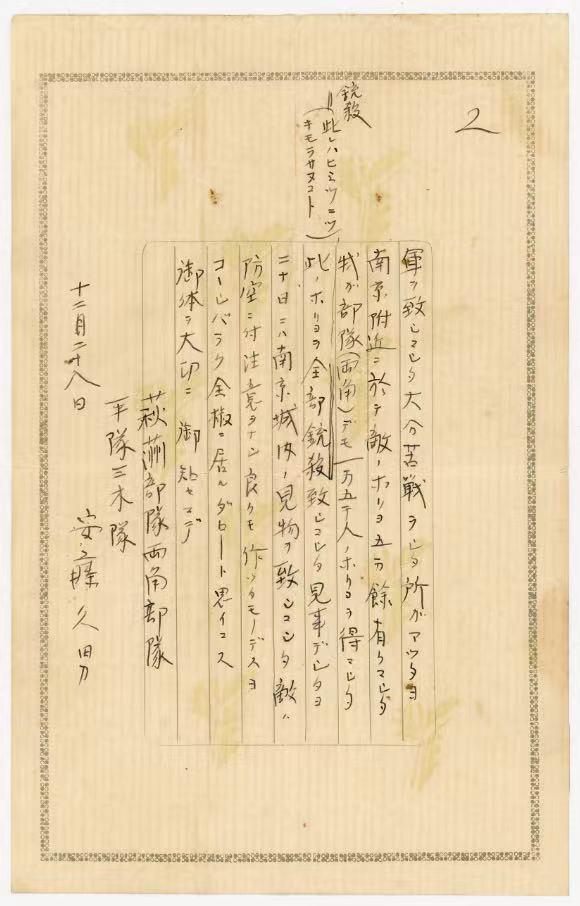 2
軍ヲ致シマシタ大分苦戦ヲシタ所ガアツタヨ
南京附近ニ於テ敵ノホリヨ五万餘有リマシタ
我ガ部隊(両角)デモ一万五千人ノホリヨヲ得マシタ
銃殺
(此レハヒミツニツ
キモラサヌコト)
此ノホリヨヲ全部銃殺致シマシタ見事デシタヨ
二十日ニハ南京城内ノ見物ヲ致シマシタ敵ハ
防空ニ付注意ヲナシ良クモ作ツタモーデスヨ
コーシバラク全椒ニ居ルダロート思イマス
御体ヲ大切ニ 御知セマデ
荻洲部隊両角部隊
平隊三木隊
安藤久男
十二月二十八日